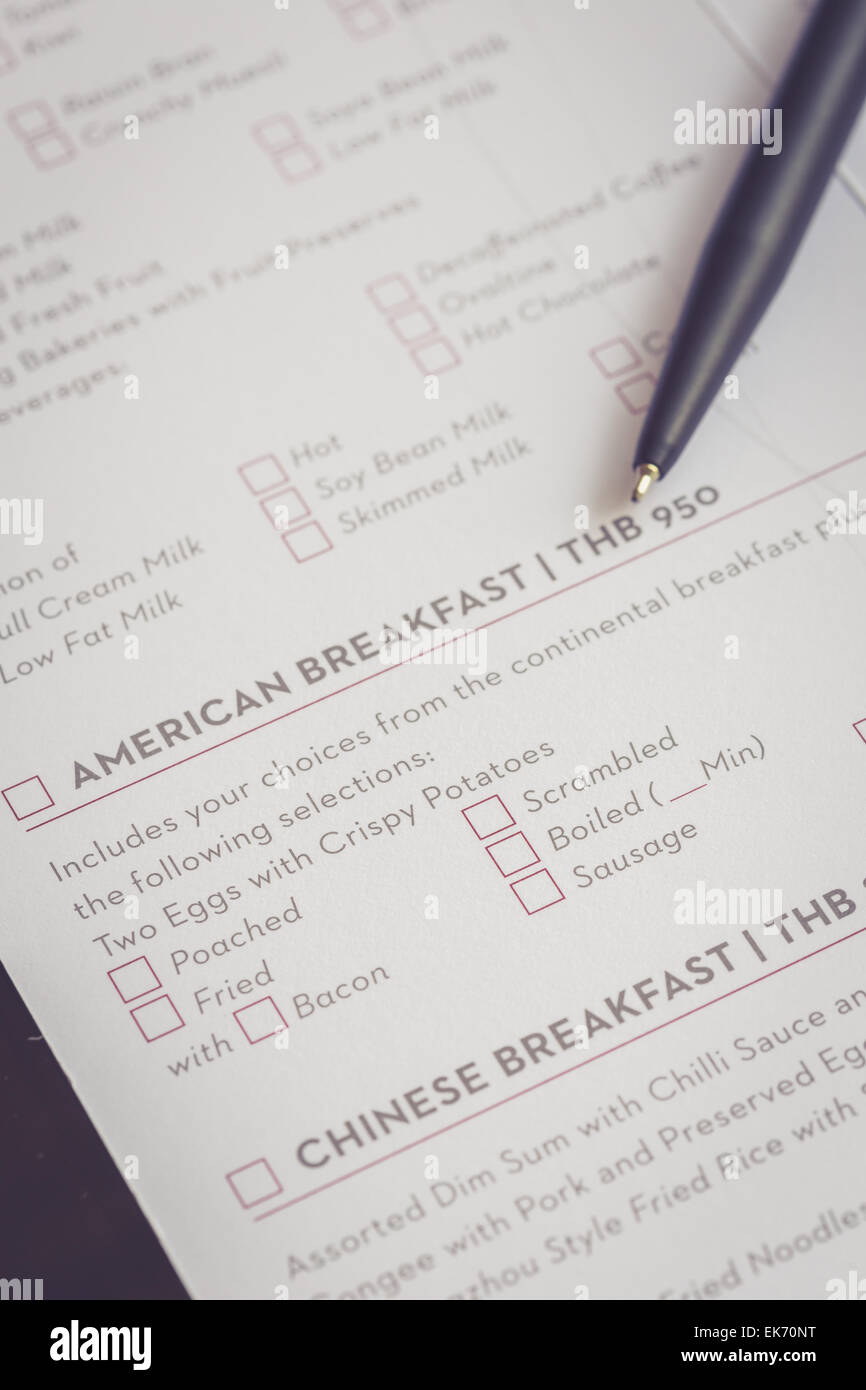 Kiwi
Bacon Bran
Crunchy Muesli
Soya Bean Milk
Low Fat Milk
Milk
Milk
Fresh Fruit
Bakeries with Fruit Preserves
everages:
Decaffeinated Coffee
Ovaltine
Hot Chocolate
Hot
Soy Bean Milk
Skimmed Milk
ion of
ull Cream Milk
Low Fat Milk
AMERICAN BREAKFAST | THB 950
Includes your choices from the continental breakfast plu
the following selections:
Two Eggs with Crispy Potatoes
Poached
Fried
with Bacon
Scrambled
Boiled (__Min)
Sausage
CHINESE BREAKFAST | THB
Assorted Dim Sum with Chilli Sauce an
Congee with Pork and Preserved Egg
zhou Style Fried Rice with
Fried Noodles
alamy
Image ID: EK70NT
www.alamy.com